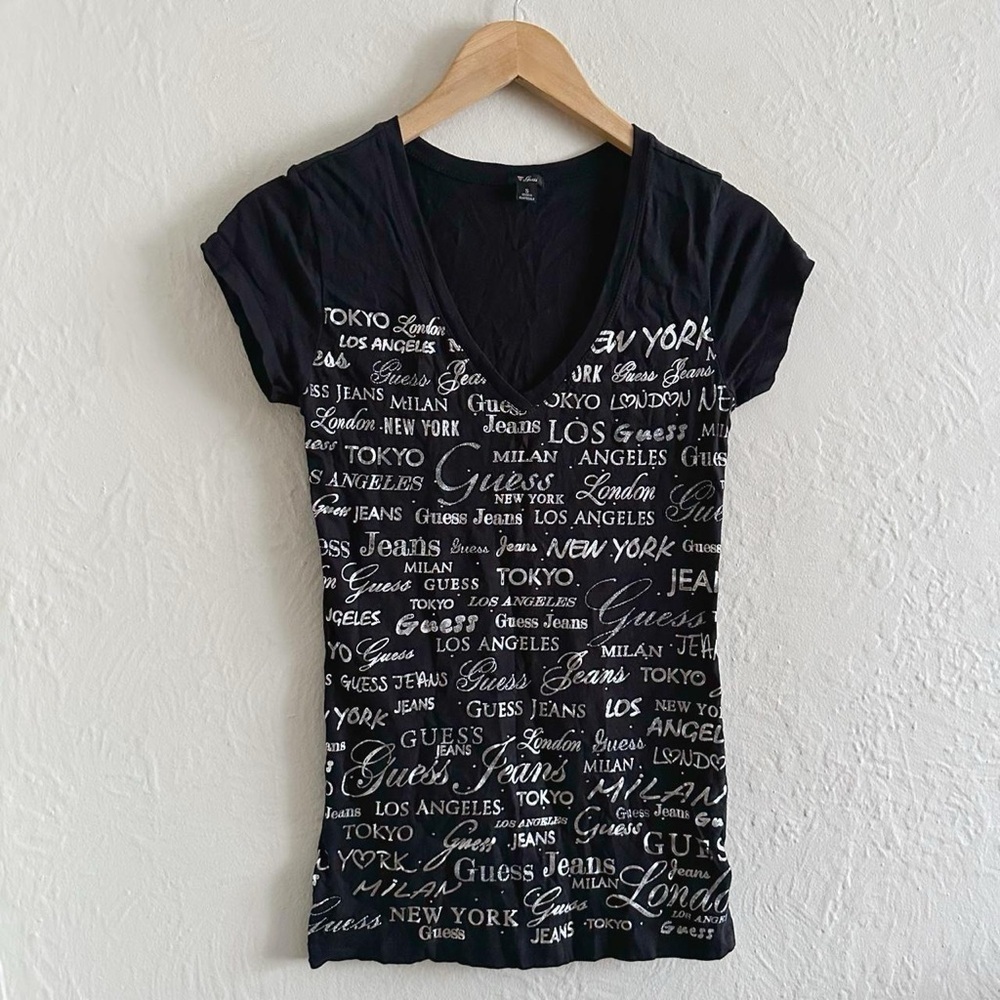 Guess
S
TOKYO London EW YORK
LOS ANGELES M
ess Guess Jea ORK Guess Jeans
ESS JEANS MILAN Guess OKYO L♡ND♡N NE
London NEW YORK Jeans LOS Guess MIL
uess TOKYO MILAN ANGELES Gues
S ANGELES Guess NEW YORK London Gue
Guess JEANS Guess Jeans LOS ANGELES
ess Jeans Guess Jeans NEW YORK Guess
MILAN
on Guess GUESS TOKYO JEAN
TOKYO LOS ANGELES Guess
NGELES Guess Guess Jeans
YO Guess LOS ANGELES MILAN JEA
S GUESS JEANS Guess Jeans TOKYO
YORK JEANS GUESS JEANS LOS NEW YO
ans GUESS JEANS London Guess ANGEL
Guess Jeans MILAN L♡ND♡
Jeans LOS ANGELES TOKYO MILAN
LOS ANGELES Guess Guess Jeans Gu
TOKYO Guess JEANS GUES
Y♡RK Guess Jeans Jeans
MILAN MILAN Londo
Guess NEW YORK Guess LOS ANGE
Guess JEANS TOKYO Guess